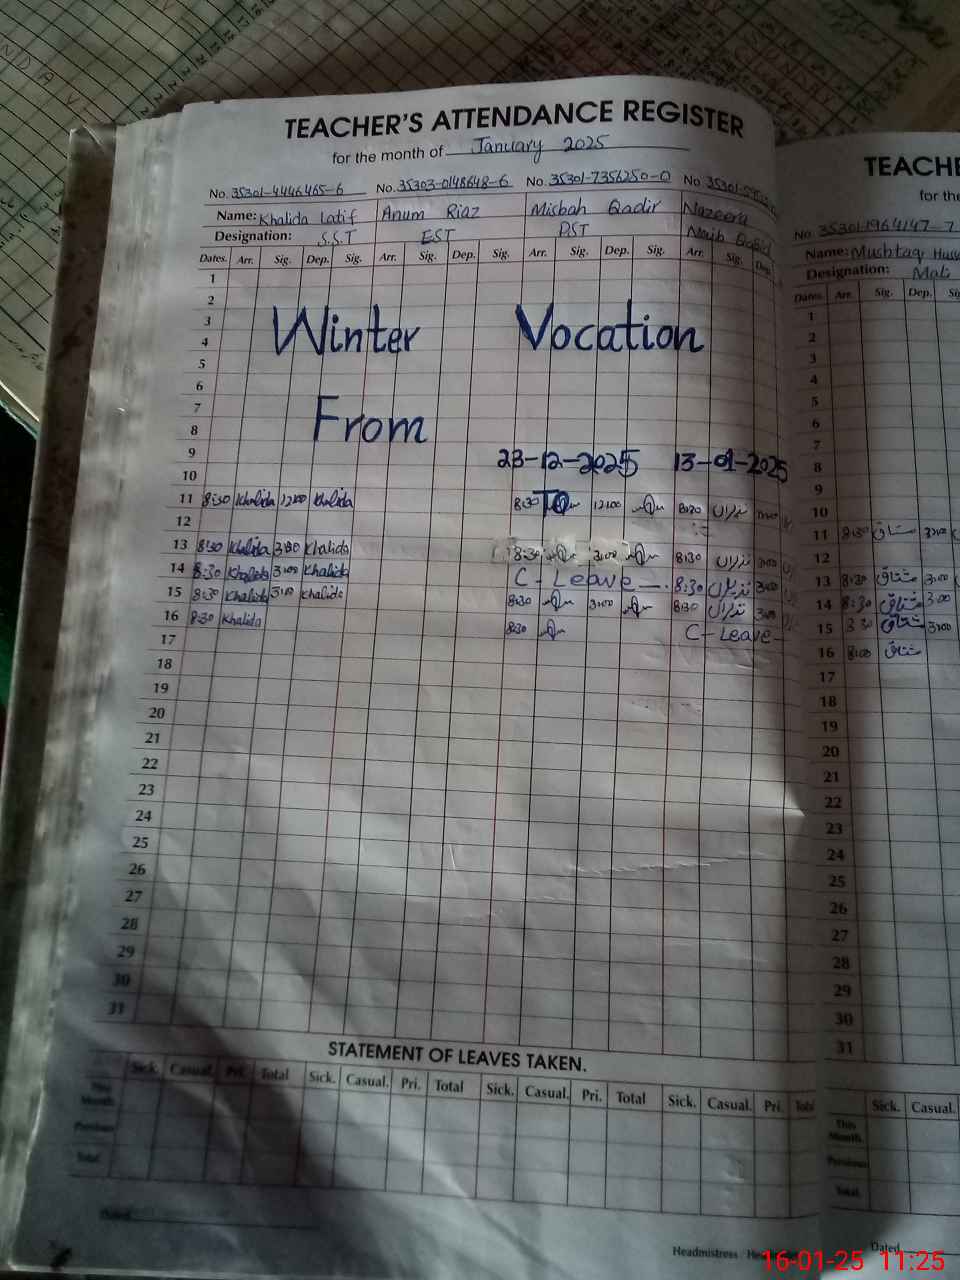 TEACHER'S ATTENDANCE REGISTER
for the month of January 2025
No. 35301-4446465-6 No. 35303-0148648-6 No. 35301-7356250-0 No. 35301-
Name: Khalida Latif Anum Riaz Misbah Qadir Nazeera
Designation: S.S.T EST PST Naib Qasid
Dates. Arr. Sig. Dep. Sig. Arr. Sig. Dep. Sig. Arr. Sig. Dep. Sig. Arr. Sig. Dep.
1
2
3
4
Winter Vocation
5
6
7
8
From
9
23-12-2025 13-01-2025
10
TO
11 8:30 Khalida 12:00 Khalida 8:30 12:00 8:30
12
13 8:30 Khalida 3:00 Khalida 8:30 3:00 8:30 3:00
14 8:30 Khalida 3:00 Khalida C-Leave 8:30 3:00
15 8:30 Khalida 3:00 Khalida 8:30 3:00 8:30 3:00
16 8:30 Khalida 8:30 C-Leave
17
18
19
20
21
22
23
24
25
26
27
28
29
30
31
STATEMENT OF LEAVES TAKEN.
Sick. Casual. Pri. Total Sick. Casual. Pri. Total Sick. Casual. Pri. Total Sick. Casual. Pri. Total
This Month.
Previous
Total.
Dated
Headmistress
TEACHE
for the
No. 35301-1964147-7
Name: Mushtaq Huss
Designation: Mali
Dates Arr. Sig. Dep.
1
2
3
4
5
6
7
8
9
10
11 8:30 مشتاق 3:00
12
13 8:30 مشتاق 3:00
14 8:30 مشتاق 3:00
15 مشتاق 3:00
16 8:00 مشتاق
17
18
19
20
21
22
23
24
25
26
27
28
29
30
31
Sick. Casual.
This Month.
Previous
Total.
Dated
16-01-25 11:25